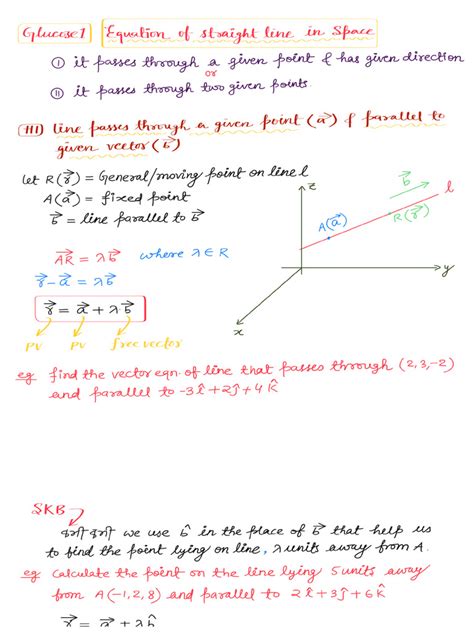 Glucose 1 Equation of straight line in Space
① it passes through a given point & has given direction
or
② it passes through two given points.
III) line passes through a given point (a⃗) & parallel to
given vector (b⃗)
let R(r⃗) = General/moving point on line l
A(a⃗) = fixed point
b⃗ = line parallel to b⃗
AR⃗ = λb⃗ where λ ∈ R
r⃗ - a⃗ = λb⃗
r⃗ = a⃗ + λb⃗
PV PV free vector
z
b⃗
l
A(a⃗)
R(r⃗)
y
x
eg find the vector eqn. of line that passes through (2,3,-2)
and parallel to -3î+2ĵ+4k̂
SKB
कभी कभी we use b̂ in the place of b⃗ that help us
to find the point lying on line, λ units away from A.
eg Calculate the point on the line lying 5 units away
from A(-1,2,8) and parallel to 2î+3ĵ+6k̂
r⃗ = a⃗ + λb̂